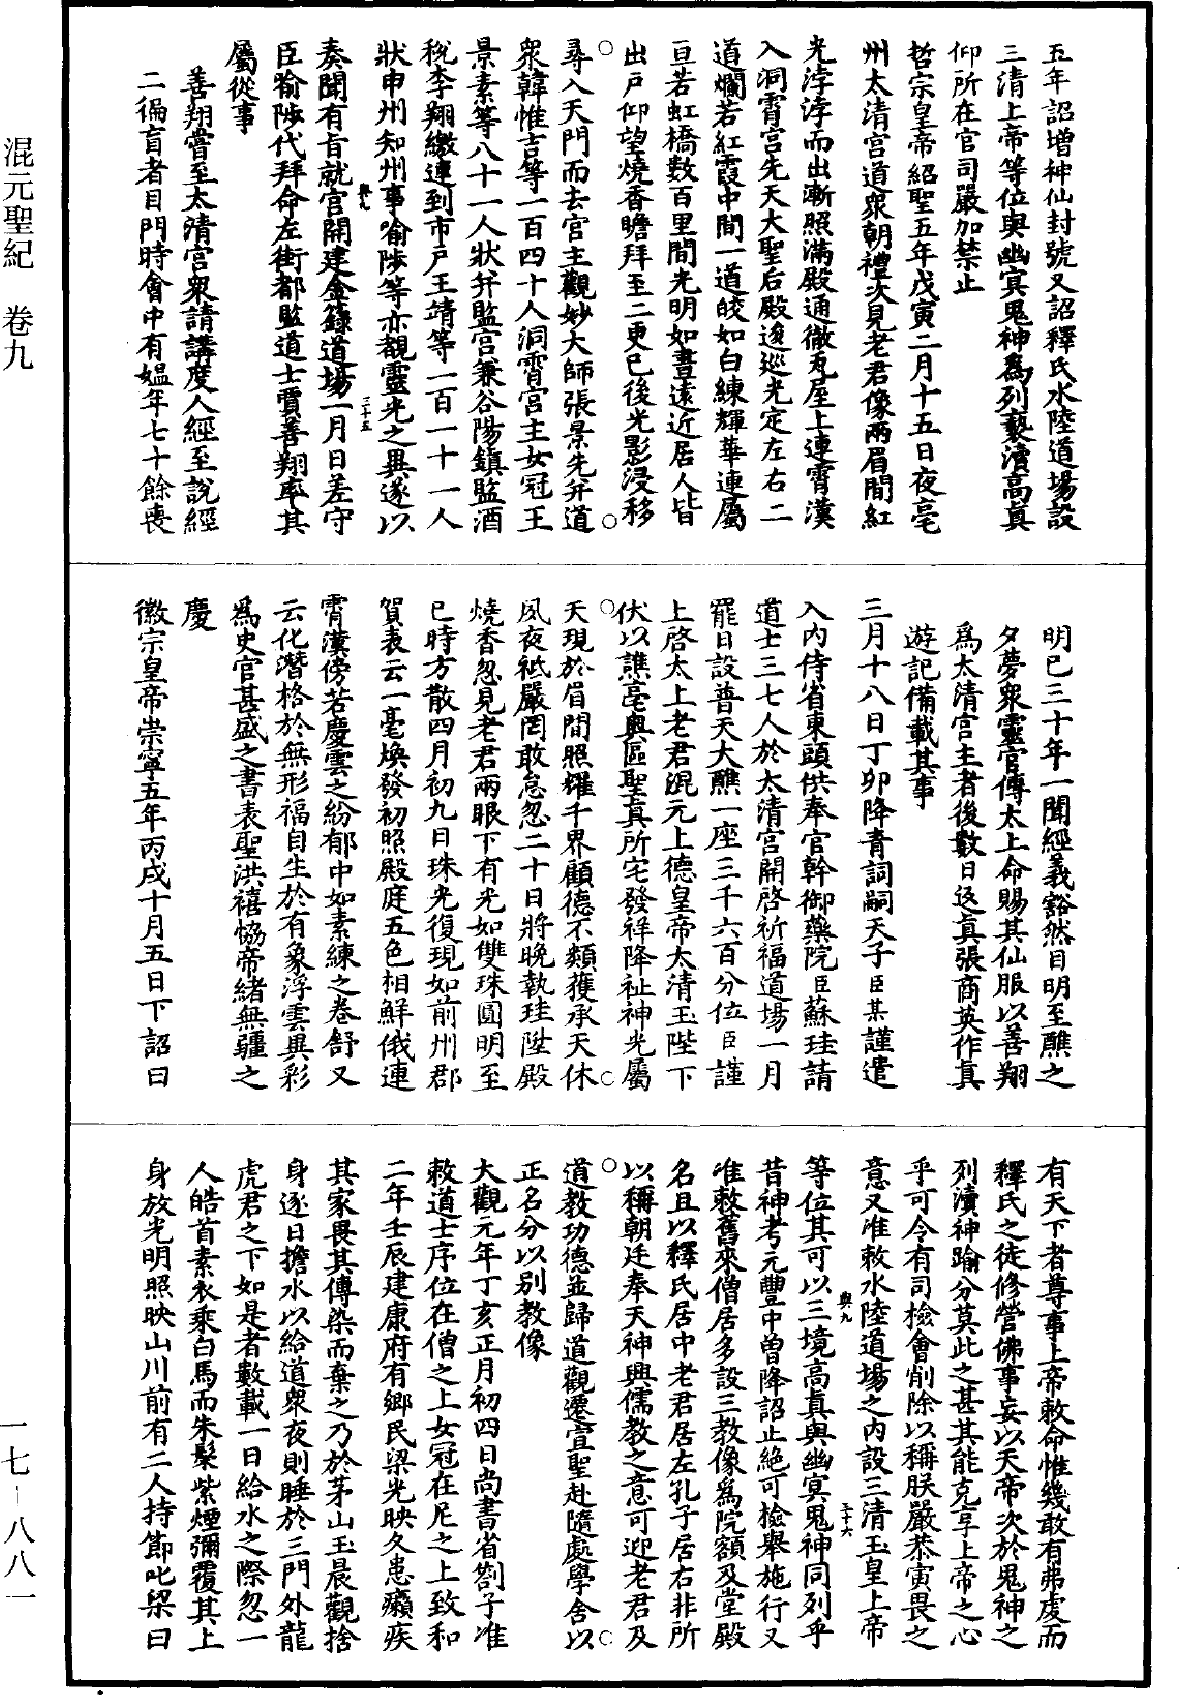 混元聖紀　卷九
五年詔增神仙封號又詔釋氏水陸道場設
三清上帝等位與幽冥鬼神爲列褻瀆高眞
仰所在官司嚴加禁止
哲宗皇帝紹聖五年戊寅二月十五日夜亳
州太清宮道衆朝禮次見老君像兩眉間紅
光浡浡而出漸照滿殿通徹瓦屋上連霄漢
入洞霄宮先天大聖后殿逡巡光定左右二
道爛若紅霞中間一道皎如白練輝華連屬
亘若虹橋數百里間光明如晝遠近居人皆
出戶仰望燒香瞻拜至二更已後光影浸移
尋入天門而去宮主觀妙大師張景先并道
衆韓惟吉等一百四十人洞霄宮主女冠王
景素等八十一人狀并監宮兼谷陽鎮監酒
稅李翔繳連到市戶王靖等二百一十一人
狀申州知州事喻陟等亦覩靈光之異遂以
奏聞有旨就宮開建金籙道場一月日差守
與九
三十五
臣喻陟代拜命左街都監道士賈善翔率其
屬從事
善翔嘗至太清宮衆請講度人經至說經
二徧盲者目開時會中有媼年七十餘喪
明已三十年一聞經義豁然目明至醮之
夕夢衆靈官傳太上命賜其仙服以善翔
爲太清宮主者後數日返眞張商英作眞
遊記備載其事
三月十八日丁卯降青詞嗣天子臣某謹遣
入內侍省東頭供奉官幹御藥院臣蘇珪請
道士三七人於太清宮開啓祈福道場一月
罷日設普天大醮一座三千六百分位臣謹
上啓太上老君混元上德皇帝太清玉陛下
伏以譙亳輿區聖真所宅發祥降祉神光屬
天現於眉間照耀千界顧德不類獲承天休
夙夜祗嚴罔敢怠忽二十日將晚執珪陞殿
燒香忽見老君兩眼下有光如雙珠圓明至
巳時方散四月初九日珠光復現如前州郡
賀表云一毫煥發初照殿庭五色相鮮俄連
霄漢傍若慶雲之紛郁中如素練之卷舒又
云化潛格於無形福自生於有象浮雲異彩
爲史官甚盛之書表聖洪禧恊帝緒無疆之
慶
徽宗皇帝崇寧五年丙戌十月五日下詔曰
有天下者尊事上帝敕命惟幾敢有弗虔而
釋氏之徒修營佛事妄以天帝次於鬼神之
列瀆神踰分莫此之甚其能克享上帝之心
乎可令有司檢會削除以稱朕嚴恭寅畏之
意又准敕水陸道場之內設三清玉皇上帝
等位其可以三境高眞與幽冥鬼神同列乎
與九
三十六
昔神考元豐中曾降詔止絶可檢舉施行又
准敕舊來僧居多設三教像爲院額及堂殿
名且以釋氏居中老君居左孔子居右非所
以稱朝廷奉天神興儒教之意可迎老君及
道教功德並歸道觀遷宣聖赴隨處學舍以
正名分以別教像
大觀元年丁亥正月初四日尚書省劄子准
敕道士序位在僧之上女冠在尼之上致和
二年壬辰建康府有鄉民梁光映久患癩疾
其家畏其傳染而棄之乃於茅山玉晨觀捨
身逐日擔水以給道衆夜則睡於三門外龍
虎君之下如是者數載一日給水之際忽一
人皓首素衣乘白馬而朱鬃紫煙彌覆其上
身放光明照映山川前有二人持節叱梁曰
一七—八八一